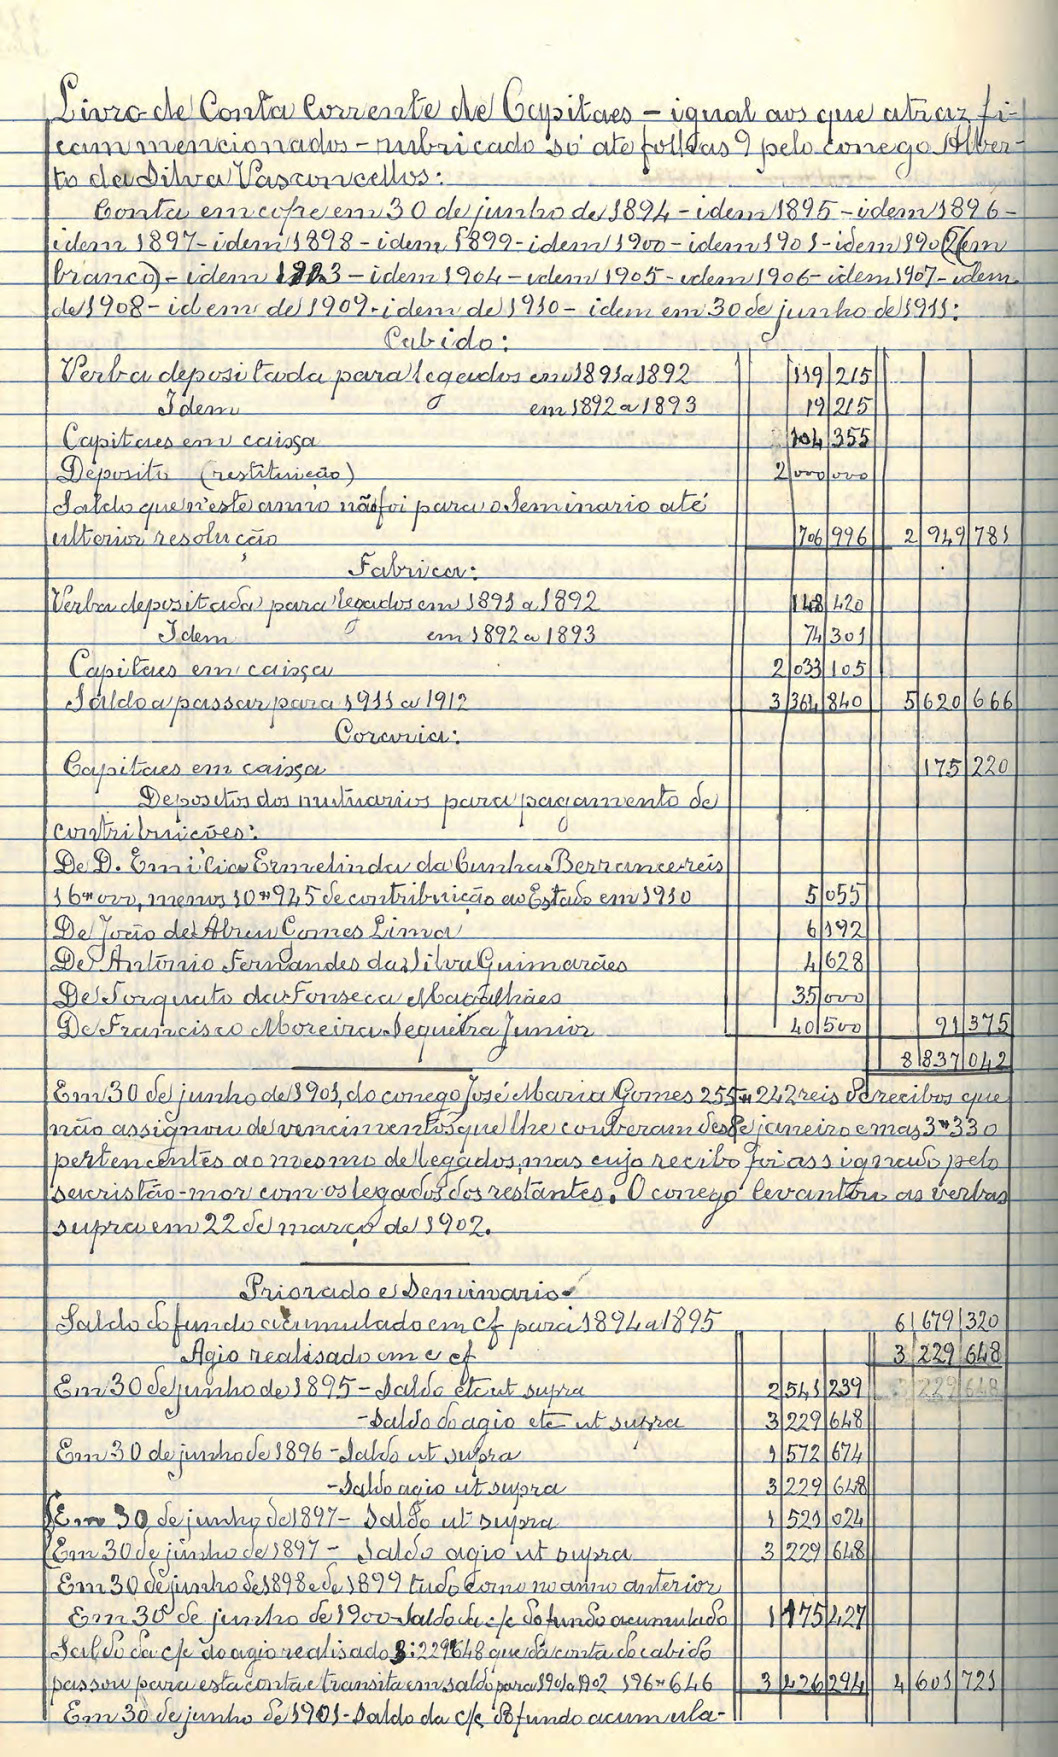 Livro de Conta Corrente de Capitaes - igual aos que atraz fi-
cam mencionados - rubricado só até folhas 9 pelo conego Alber-
to da Silva Vasconcellos:
Conta em cofre em 30 de junho de 1894 - idem 1895 - idem 1896 -
idem 1897 - idem 1898 - idem 1899 - idem 1900 - idem 1901 - idem 1902 (em
branco) - idem 1903 - idem 1904 - idem 1905 - idem 1906 - idem 1907 - idem
de 1908 - idem de 1909 - idem de 1910 - idem em 30 de junho de 1911:
Cabido:
Verba depositada para legados em 1891 a 1892 119 215
Idem em 1892 a 1893 19 215
Capitaes em caixa 104 355
Deposito (restituição) 2 000 000
Saldo que n'este anno não foi para o Seminario até
ulterior resolução 706 996 2 949 781
Fabrica:
Verba depositada para legados em 1891 a 1892 148 420
Idem em 1892 a 1893 74 301
Capitaes em caixa 2 033 105
Saldo a passar para 1911 a 1912 3 364 840 5 620 666
Coraria:
Capitaes em caixa 175 220
Depositos dos mutuarios para pagamento de
contribuições:
De D. Emilia Ermelinda da Cunha Berrance reis
16$000, menos 10$945 de contribuição ao Estado em 1910 5 055
De João de Abreu Gomes Lima 6 192
De António Fernandes da Silva Guimarães 4 628
De Torquato da Fonseca Magalhães 35 000
De Francisco Moreira Sequeira Junior 40 500 91 375
8 837 042
Em 30 de junho de 1901, do conego José Maria Gomes 255$242 reis de recibos que
não assignou de vencimentos que lhe couberam desde janeiro e mas 3$330
pertencentes ao mesmo de legados, mas cujo recibo foi assignado pelo
sacristão-mor com os legados dos restantes. O conego levantou as verbas
supra em 22 de março de 1902.
Priorado e Seminario
Saldo do fundo acumulado em cf para 1894 a 1895 6 679 320
Agio realisado em c cf 3 229 648
Em 30 de junho de 1895 - Saldo etc ut supra 2 541 239 3 229 648
- Saldo do agio etc ut supra 3 229 648
Em 30 de junho de 1896 - Saldo ut supra 1 572 674
- Saldo agio ut supra 3 229 648
Em 30 de junho de 1897 - Saldo ut supra 1 521 024
Em 30 de junho de 1897 - Saldo agio ut supra 3 229 648
Em 30 de junho de 1898 e de 1899 tudo como no anno anterior
Em 30 de junho de 1900 - Saldo da c/c do fundo acumulado 1 175 427
Saldo da c/c do agio realisado 3:229$648 que da conta do cabido
passou para esta conta e transita em saldo para 1901 a 1902 196$646 3 426 294 4 601 721
Em 30 de junho de 1901 - Saldo da c/c do fundo acumula-